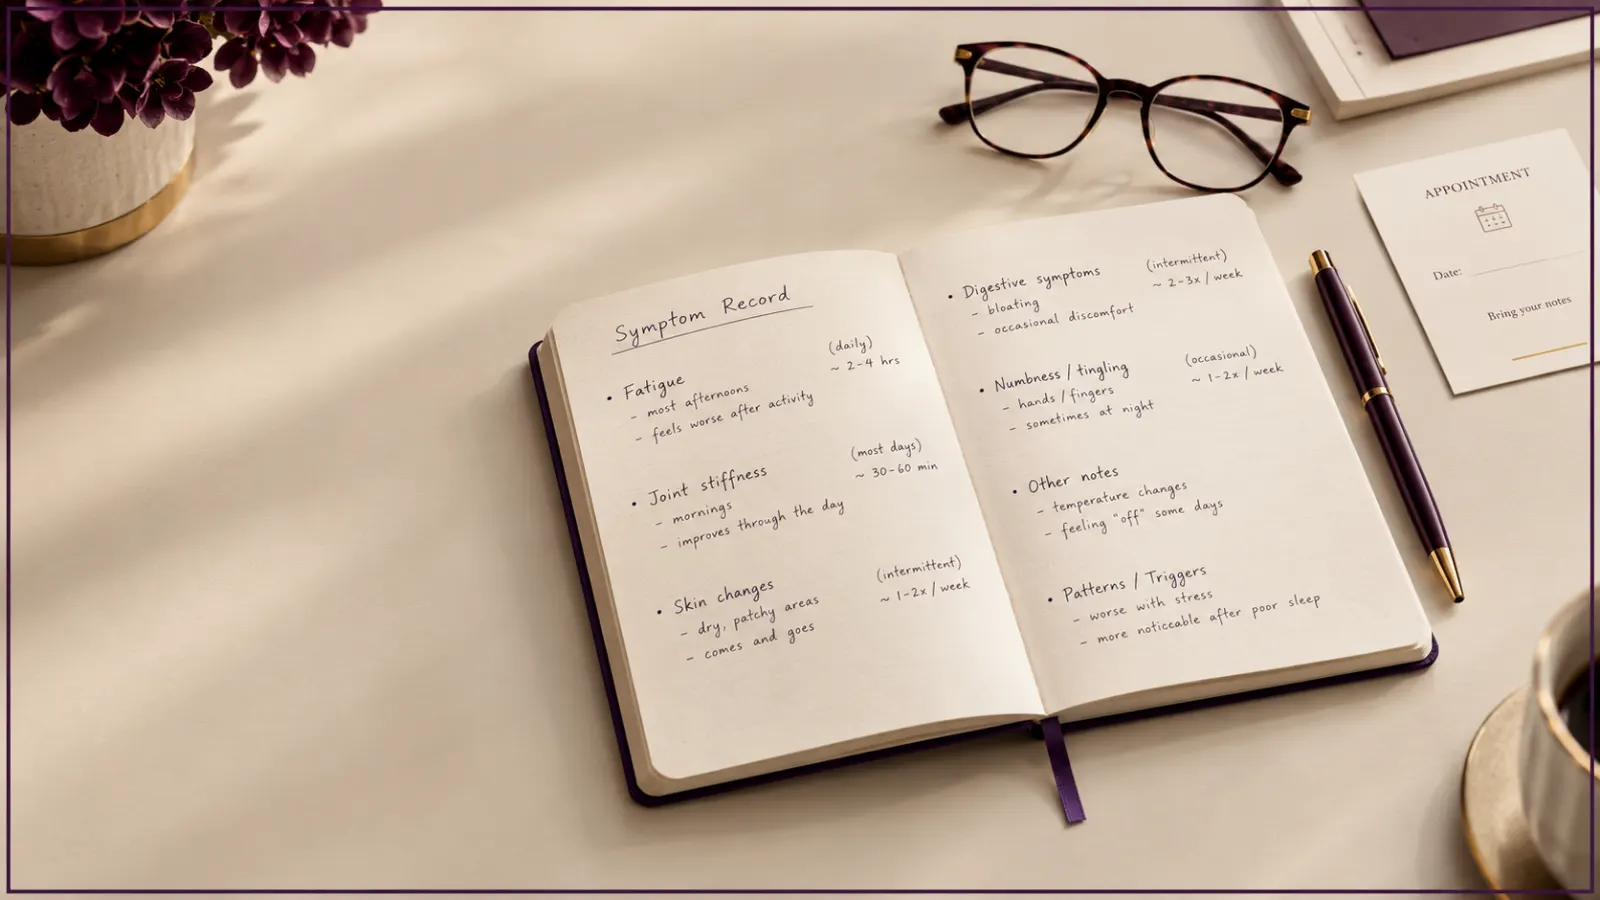 Symptom Record
• Fatigue
(daily)
~ 2-4 hrs
- most afternoons
- feels worse after activity
• Joint stiffness
(most days)
~ 30-60 min
- mornings
- improves through the day
• Skin changes
(intermittent)
~ 1-2x / week
- dry, patchy areas
- comes and goes
• Digestive symptoms
(intermittent)
~ 2-3x / week
- bloating
- occasional discomfort
• Numbness / tingling
(occasional)
~ 1-2x / week
- hands / fingers
- sometimes at night
• Other notes
- temperature changes
- feeling "off" some days
• Patterns / Triggers
- worse with stress
- more noticeable after poor sleep
APPOINTMENT
Date:
Bring your notes